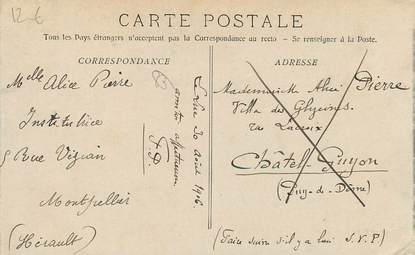 12 €
CARTE POSTALE
Tous les Pays étrangers n'acceptent pas la Correspondance au recto – Se renseigner à la Poste.
CORRESPONDANCE
Melle Alice Pierre
Institutrice
5 Rue
Montpellier
(Hérault)
Le 20 août 1916
affectueux
ADRESSE
Mademoiselle Alice Pierre
Villa des Glycines
rue Lacroix
Châtel-Guyon
(Puy-de-Dôme)
(Faire suivre s'il y a lieu S.V.P)